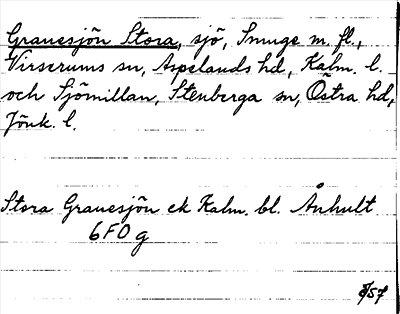 Grauesjön Stora, sjö, Smuge m. fl.,
Virserums sn, Aspelands hd, Kalm. l.
och Sjömillan, Stenberga sn, Östra hd,
Jönk. l.
Stora Grauesjön ek Kalm. bl. Ånhult
6F0g
/57